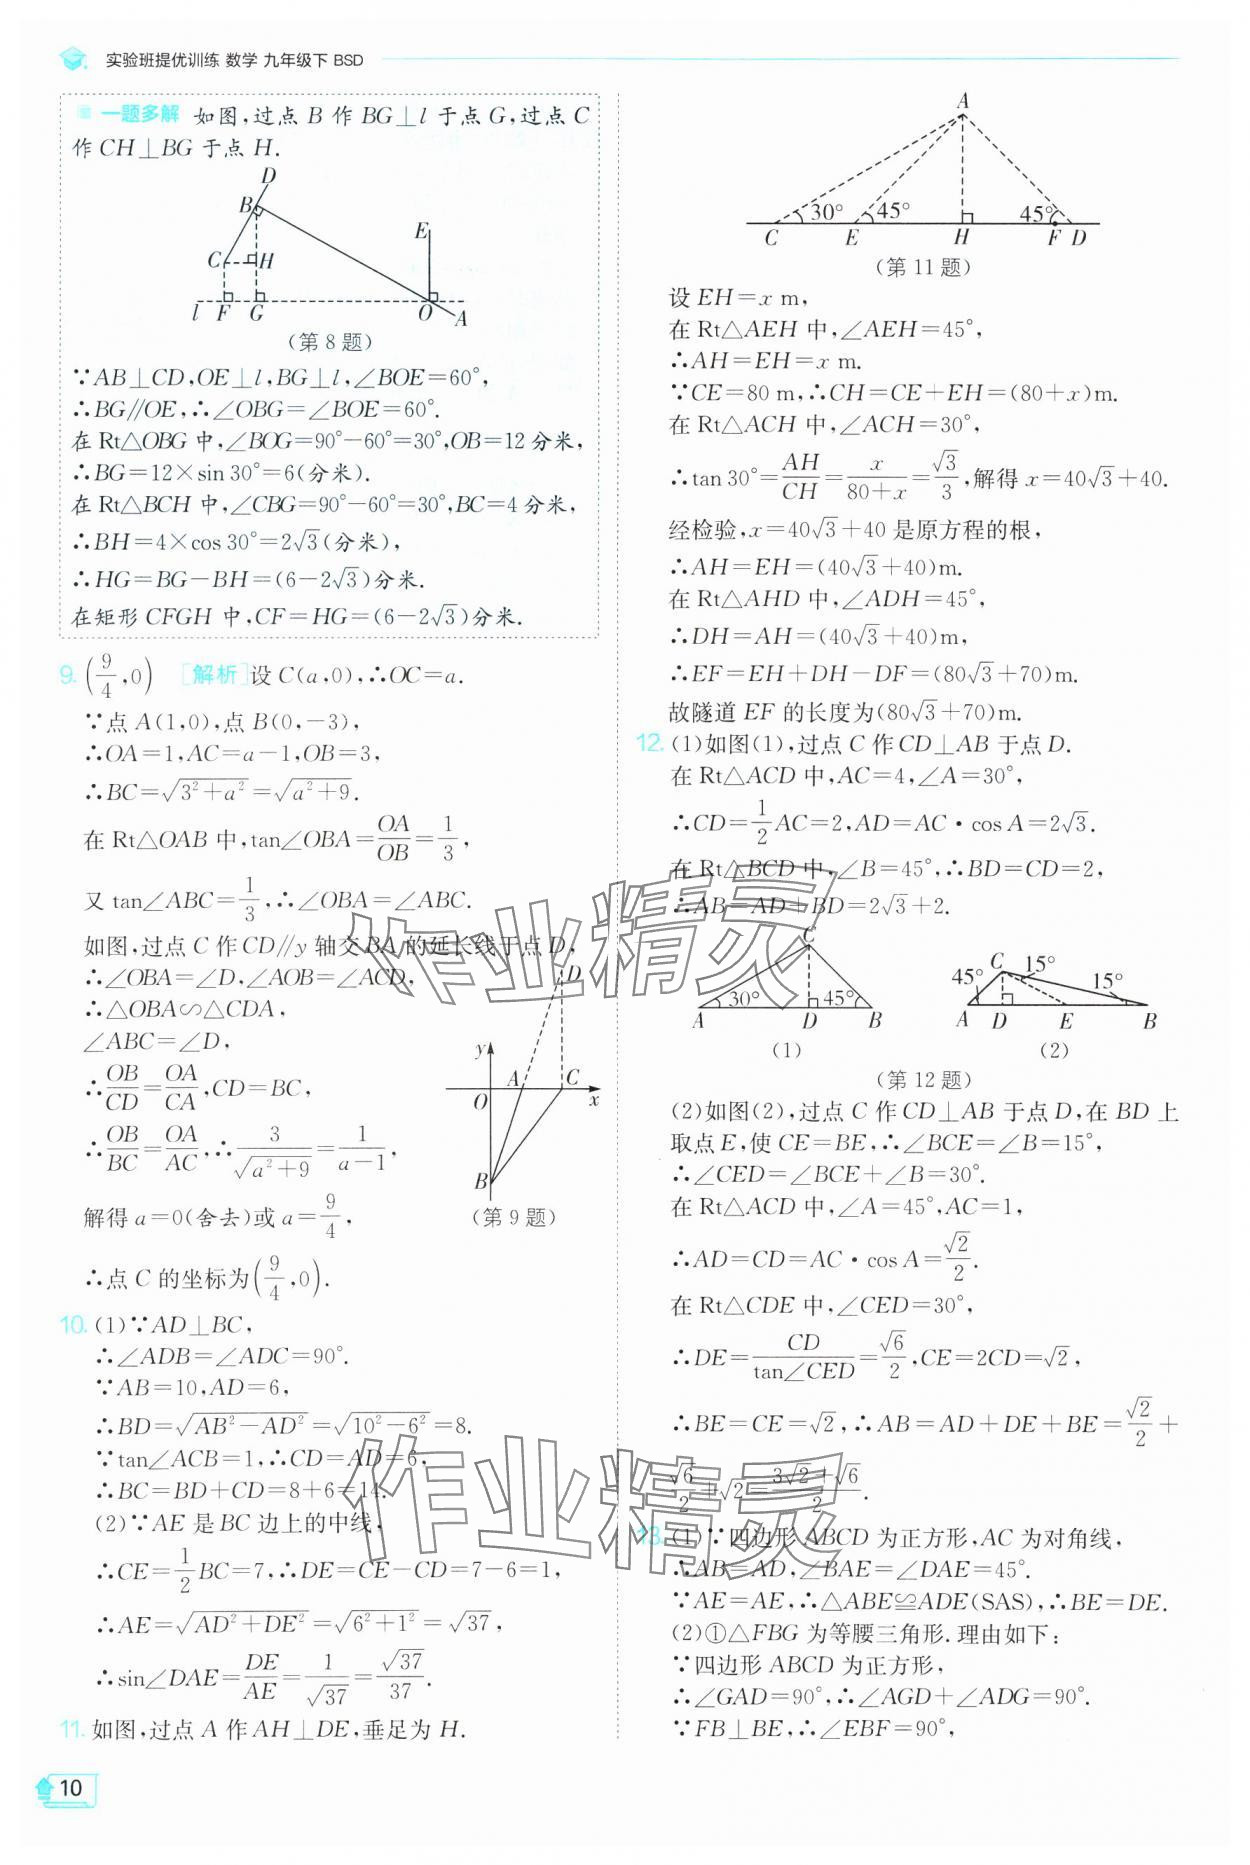 实验班提优训练 数学 九年级下 BSD
一题多解 如图,过点 B 作 BG⊥l 于点 G,过点 C
作 CH⊥BG 于点 H.
D
B
E
C
H
l F G O A
(第 8 题)
∵AB⊥CD,OE⊥l,BG⊥l,∠BOE=60°,
∴BG∥OE,∴∠OBG=∠BOE=60°.
在 Rt△OBG 中,∠BOG=90°-60°=30°,OB=12 分米,
∴BG=12×sin 30°=6(分米).
在 Rt△BCH 中,∠CBG=90°-60°=30°,BC=4 分米,
∴BH=4×cos 30°=2√3(分米),
∴HG=BG-BH=(6-2√3)分米.
在矩形 CFGH 中,CF=HG=(6-2√3)分米.
9. (9/4,0) [解析]设 C(a,0),∴OC=a.
∵点 A(1,0),点 B(0,-3),
∴OA=1,AC=a-1,OB=3,
∴BC=√(3²+a²)=√(a²+9).
在 Rt△OAB 中,tan∠OBA=OA/OB=1/3,
又 tan∠ABC=1/3,∴∠OBA=∠ABC.
如图,过点 C 作 CD∥y 轴交 BA 的延长线于点 D,
∴∠OBA=∠D,∠AOB=∠ACD,
∴△OBA∽△CDA,
∠ABC=∠D,
∴OB/CD=OA/CA,CD=BC,
∴OB/BC=OA/AC,∴3/√(a²+9)=1/(a-1),
解得 a=0(舍去)或 a=9/4,
∴点 C 的坐标为(9/4,0).
D
y
A C
O x
B
(第 9 题)
10. (1)∵AD⊥BC,
∴∠ADB=∠ADC=90°.
∵AB=10,AD=6,
∴BD=√(AB²-AD²)=√(10²-6²)=8.
∵tan∠ACB=1,∴CD=AD=6,
∴BC=BD+CD=8+6=14.
(2)∵AE 是 BC 边上的中线,
∴CE=1/2BC=7,∴DE=CE-CD=7-6=1,
∴AE=√(AD²+DE²)=√(6²+1²)=√37,
∴sin∠DAE=DE/AE=1/√37=√37/37.
11. 如图,过点 A 作 AH⊥DE,垂足为 H.
A
30° 45° 45°
C E H F D
(第 11 题)
设 EH=x m,
在 Rt△AEH 中,∠AEH=45°,
∴AH=EH=x m.
∵CE=80 m,∴CH=CE+EH=(80+x)m.
在 Rt△ACH 中,∠ACH=30°,
∴tan 30°=AH/CH=x/(80+x)=√3/3,解得 x=40√3+40.
经检验,x=40√3+40 是原方程的根,
∴AH=EH=(40√3+40)m.
在 Rt△AHD 中,∠ADH=45°,
∴DH=AH=(40√3+40)m,
∴EF=EH+DH-DF=(80√3+70)m.
故隧道 EF 的长度为(80√3+70)m.
12. (1)如图(1),过点 C 作 CD⊥AB 于点 D.
在 Rt△ACD 中,AC=4,∠A=30°,
∴CD=1/2AC=2,AD=AC·cos A=2√3.
在 Rt△BCD 中,∠B=45°,∴BD=CD=2,
∴AB=AD+BD=2√3+2.
C
30° 45°
A D B
(1)
45° C 15° 15°
A D E B
(2)
(第 12 题)
(2)如图(2),过点 C 作 CD⊥AB 于点 D,在 BD 上
取点 E,使 CE=BE,∴∠BCE=∠B=15°,
∴∠CED=∠BCE+∠B=30°.
在 Rt△ACD 中,∠A=45°,AC=1,
∴AD=CD=AC·cos A=√2/2.
在 Rt△CDE 中,∠CED=30°,
∴DE=CD/tan∠CED=√6/2,CE=2CD=√2,
∴BE=CE=√2,∴AB=AD+DE+BE=√2/2+
√6/2+√2=(3√2+√6)/2.
13. (1)∵四边形 ABCD 为正方形,AC 为对角线,
∴AB=AD,∠BAE=∠DAE=45°.
∵AE=AE,∴△ABE≌ADE(SAS),∴BE=DE.
(2)①△FBG 为等腰三角形.理由如下:
∵四边形 ABCD 为正方形,
∴∠GAD=90°,∴∠AGD+∠ADG=90°.
∵FB⊥BE,∴∠EBF=90°,
作业精灵
作业精灵
10